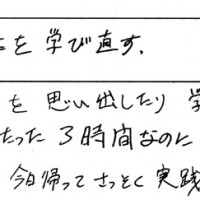 を 学び直す.
を 思い出したり 学
たった 3時間なのに
今日帰って さっそく 実践